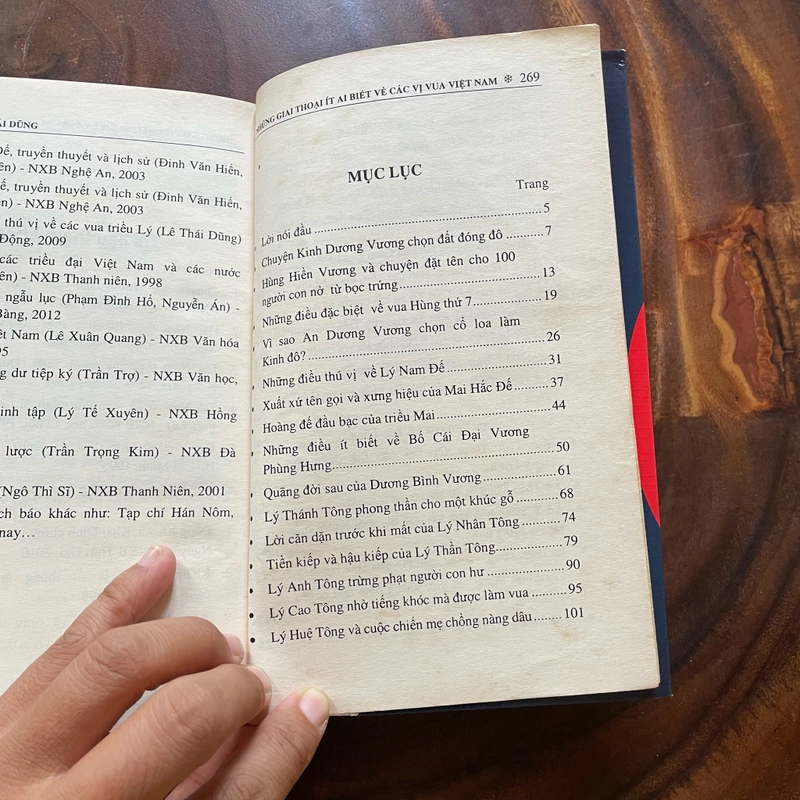 ÁI DŨNG
Đế, truyền thuyết và lịch sử (Đinh Văn Hiến,
ên) - NXB Nghệ An, 2003
ế, truyền thuyết và lịch sử (Đinh Văn Hiến,
ên) - NXB Nghệ An, 2003
thú vị về các vua triều Lý (Lê Thái Dũng)
Động, 2009
các triều đại Việt Nam và các nước
ên) - NXB Thanh niên, 1998
ngẫu lục (Phạm Đình Hổ, Nguyễn Án) -
Bàng, 2012
iệt Nam (Lê Xuân Quang) - NXB Văn hóa
95
g dư tiệp ký (Trần Trợ) - NXB Văn học,
inh tập (Lý Tế Xuyên) - NXB Hồng
lược (Trần Trọng Kim) - NXB Đà
(Ngô Thì Sĩ) - NXB Thanh Niên, 2001
ch báo khác như: Tạp chí Hán Nôm,
nay…
NHỮNG GIAI THOẠI ÍT AI BIẾT VỀ CÁC VỊ VUA VIỆT NAM ❄ 269
MỤC LỤC
Trang
• Lời nói đầu 5
• Chuyện Kinh Dương Vương chọn đất đóng đô 7
• Hùng Hiền Vương và chuyện đặt tên cho 100
người con nở từ bọc trứng 13
• Những điều đặc biệt về vua Hùng thứ 7 19
• Vì sao An Dương Vương chọn cổ loa làm
Kinh đô? 26
• Những điều thú vị về Lý Nam Đế 31
• Xuất xứ tên gọi và xưng hiệu của Mai Hắc Đế 37
• Hoàng đế đầu bạc của triều Mai 44
• Những điều ít biết về Bố Cái Đại Vương
Phùng Hưng 50
• Quãng đời sau của Dương Bình Vương 61
• Lý Thánh Tông phong thần cho một khúc gỗ 68
• Lời căn dặn trước khi mất của Lý Nhân Tông 74
• Tiền kiếp và hậu kiếp của Lý Thần Tông 79
• Lý Anh Tông trừng phạt người con hư 90
• Lý Cao Tông nhờ tiếng khóc mà được làm vua 95
• Lý Huệ Tông và cuộc chiến mẹ chồng nàng dâu 101